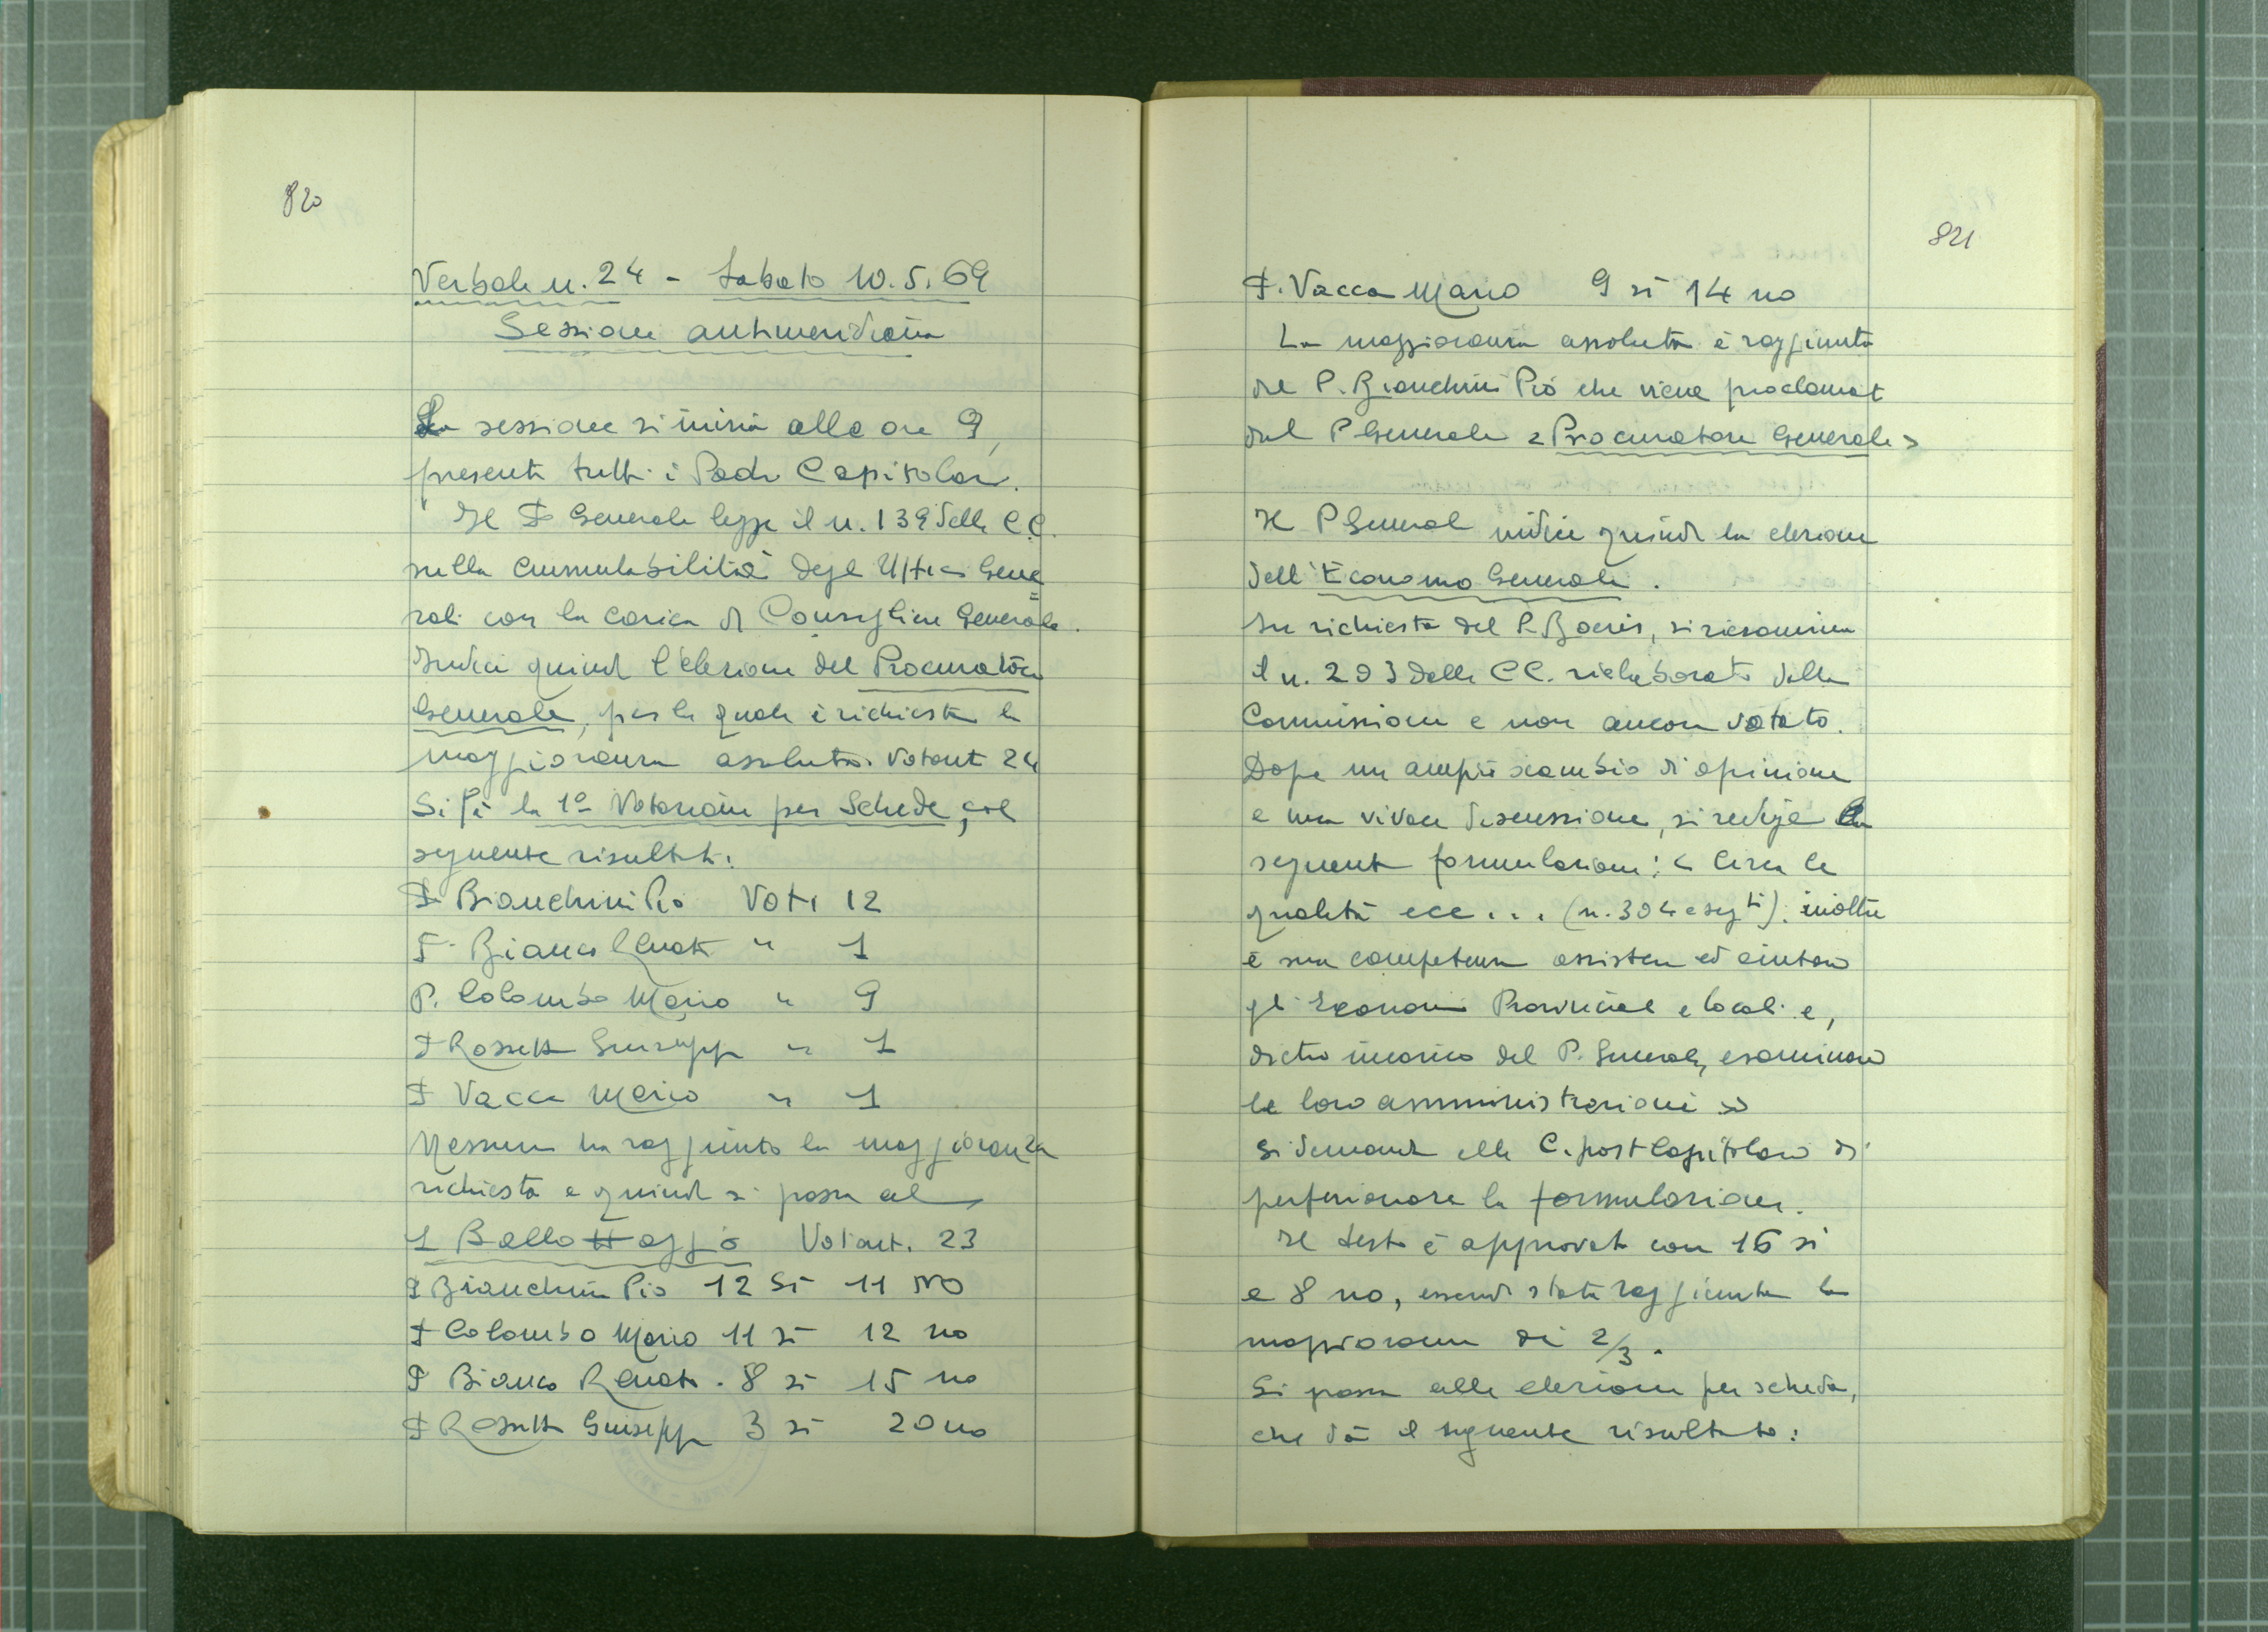 820
Verbale n. 24 - Sabato 10.5.69
Sessione antimeridiana
La sessione si inizia alle ore 9,
presenti tutti i Padri Capitolari.
Il P. Generale legge il n. 139 delle CC.
sulla Cumulabilità degli Uffici Gene=
rali con la carica di Consigliere Generale.
Indice quindi l'elezione del Procuratore
Generale, per la quale è richiesta la
maggioranza assoluta. Votanti 24
Si fa la 1a Votazione per Schede, col
seguente risultato:
P. Bianchini Pio Voti 12
P. Bianco Renato " 1
P. Colombo Mario " 9
P. Rossetti Giuseppe " 1
P. Vacca Mario " 1
Nessuno ha raggiunto la maggioranza
richiesta e quindi si passa al
1 Ballottaggio Votanti 23
P. Bianchini Pio 12 Si 11 NO
P. Colombo Mario 11 si 12 no
P. Bianco Renato. 8 si 15 no
P. Rossetti Giuseppe 3 si 20 no
821
P. Vacca Mario 9 si 14 no
La maggioranza assoluta è raggiunta
dal P. Bianchini Pio che viene proclamato
dal P Generale < Procuratore Generale >
Il P Generale indice quindi la elezione
dell'Economo Generale.
Su richiesta del P. Boeris, si riesamina
il n. 293 delle CC. rielaborato dalla
Commissione e non ancora votato.
Dopo un ampio scambio di opinione
e una vivace discussione, si redige la
seguente formulazione: < Circa le
qualità ecc... (n. 304 e segti). inoltre
è sua competenza assistere ed aiutare
gli Economi Provinciali e locali e,
dietro incarico del P. Generale, esaminare
le loro amministrazioni >>
Si demanda alla C. post Capitolare di
perfezionare la formulazione.
Il testo è approvato con 16 si
e 8 no, essendo stata raggiunta la
maggioranza di 2/3.
Si passa alla elezione per scheda,
che dà il seguente risultato: